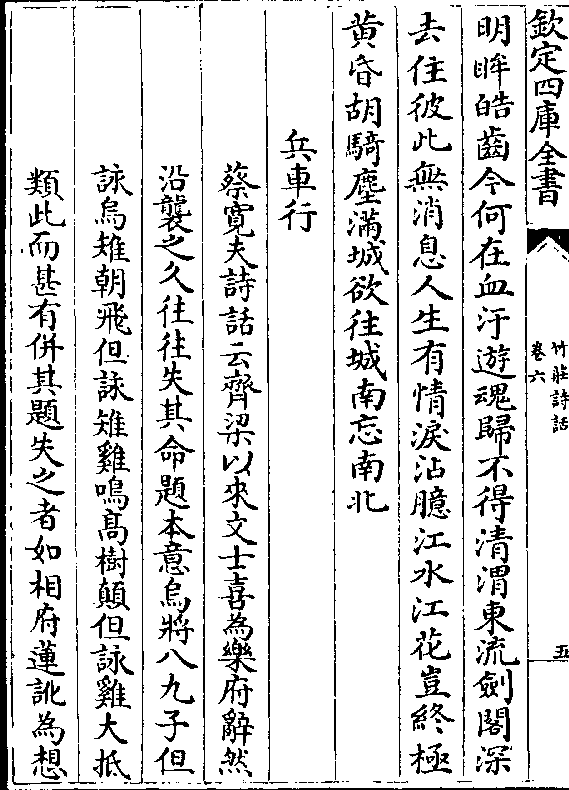 欽定四庫全書
竹莊詩話
卷六
五
明眸皓齒今何在血汙遊魂歸不得清渭東流劍閣深
去住彼此無消息人生有情淚沾臆江水江花豈終極
黄昏胡騎塵滿城欲往城南忘南北
兵車行
蔡寛夫詩話云齊梁以來文士喜為樂府辭然
沿襲之久往往失其命題本意烏將八九子但
詠烏雉朝飛但詠雉雞鳴髙樹顛但詠雞大抵
類此而甚有併其題失之者如相府蓮訛為想